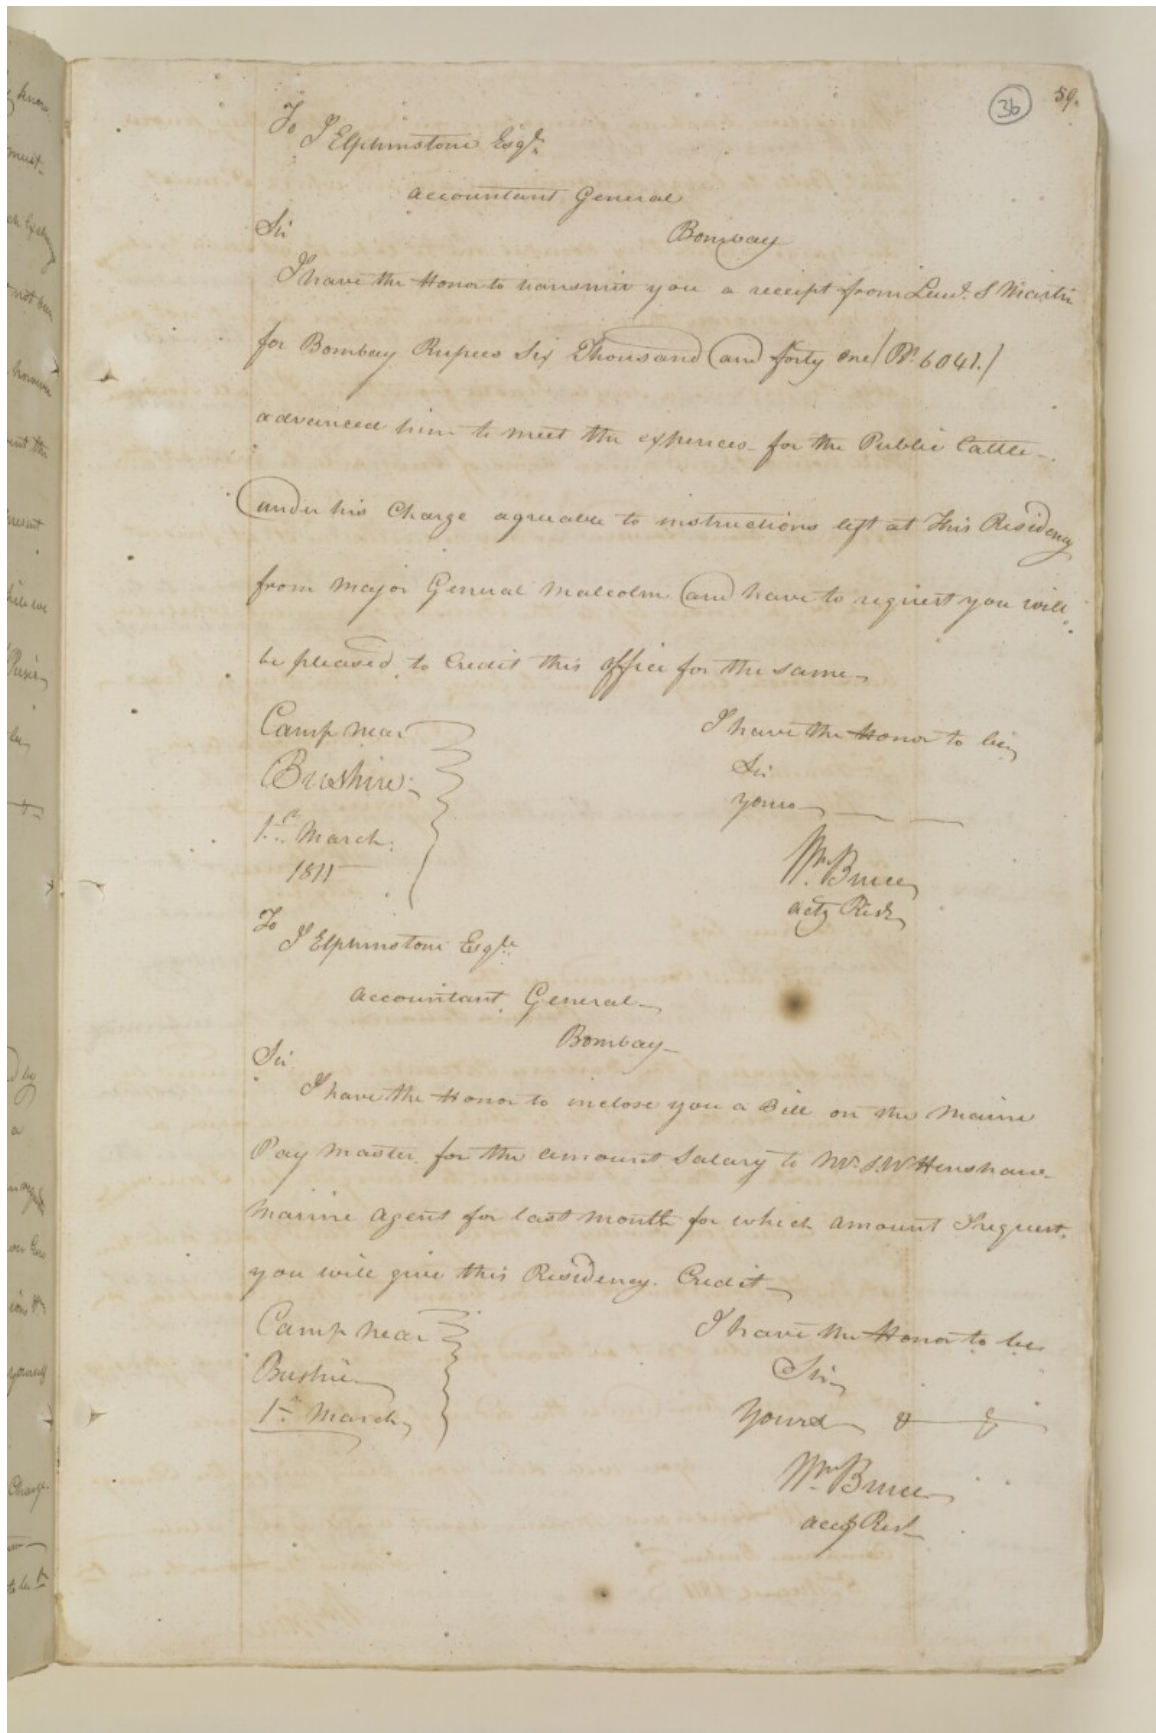 36
59.
To
J Elphinstone Esqr.
Accountant General
Bombay
Sir
I have the Honor to transmit you a receipt from Lieut. S Martin
for Bombay Rupees Six Thousand and forty one / Rs. 6041. /
advanced him to meet the expences for the Public Cattle
under his Charge agreable to instructions left at this Residency
from Major General Malcolm and have to request you will
be pleased to Credit this office for the same
Camp near
Bushire
1st March
1811
I have the Honor to be
Sir
yours
Wm. Bruce
actg Rest
To
J Elphinstone Esqre.
Accountant General
Bombay
Sir
I have the Honor to inclose you a Bill on the Marine
Pay Master for the amount Salary to Mr. S. W Henshaw
Marine Agent for last Month for which amount I request
you will give this Residency Credit
Camp near
Bushire
1st March
I have the Honor to be
Sir
Yours & &
Wm. Bruce
actg Rest